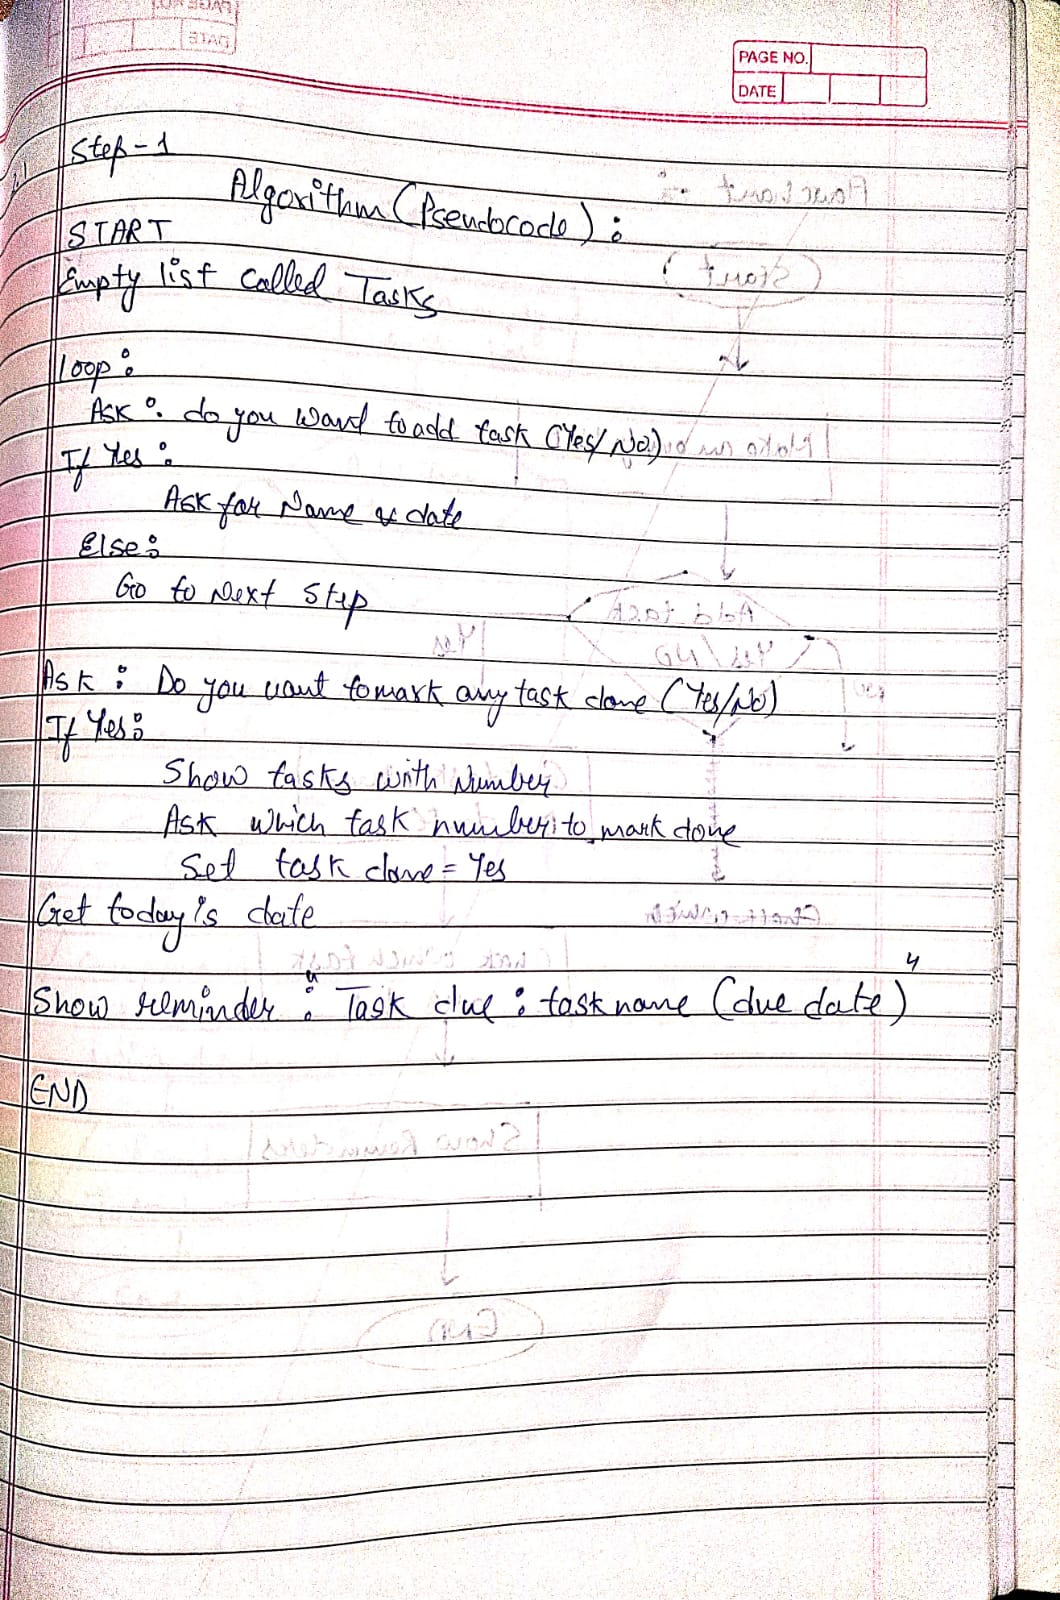 PAGE NO.
DATE
Step-1
Algorithm (Pseudocode) :
START
Empty list called Tasks
Loop :
Ask : do you want to add task (Yes/No)
If Yes :
Ask for Name & date
Else :
Go to Next Step
Ask : Do you want to mark any task done (Yes/No)
If Yes :
Show tasks with Number
Ask which task number to mark done
Set task done = Yes
Get today's date
Show reminder : "Task due : task name (due date)"
END